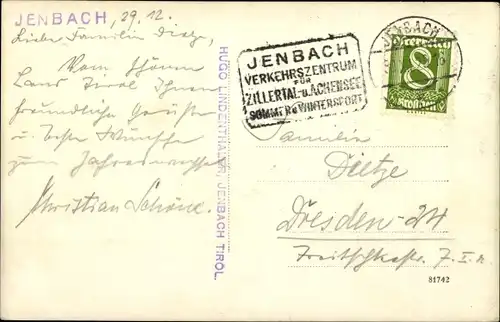 JENBACH, 29.12.
Liebe Familie Dietze,
Vom schönen
Land Tirol Ihnen
freundliche Grüsse
u. beste Wünsche
zum Jahreswechsel
Christian Schöne.
HUGO LINDENTHALER, JENBACH TIROL.
JENBACH
VERKEHRSZENTRUM
FÜR
ZILLERTAL-U.ACHENSEE
SOMMER u WINTERSPORT
JENBACH
8
Familie
Dietze
Dresden-24
7 I. r.
81742